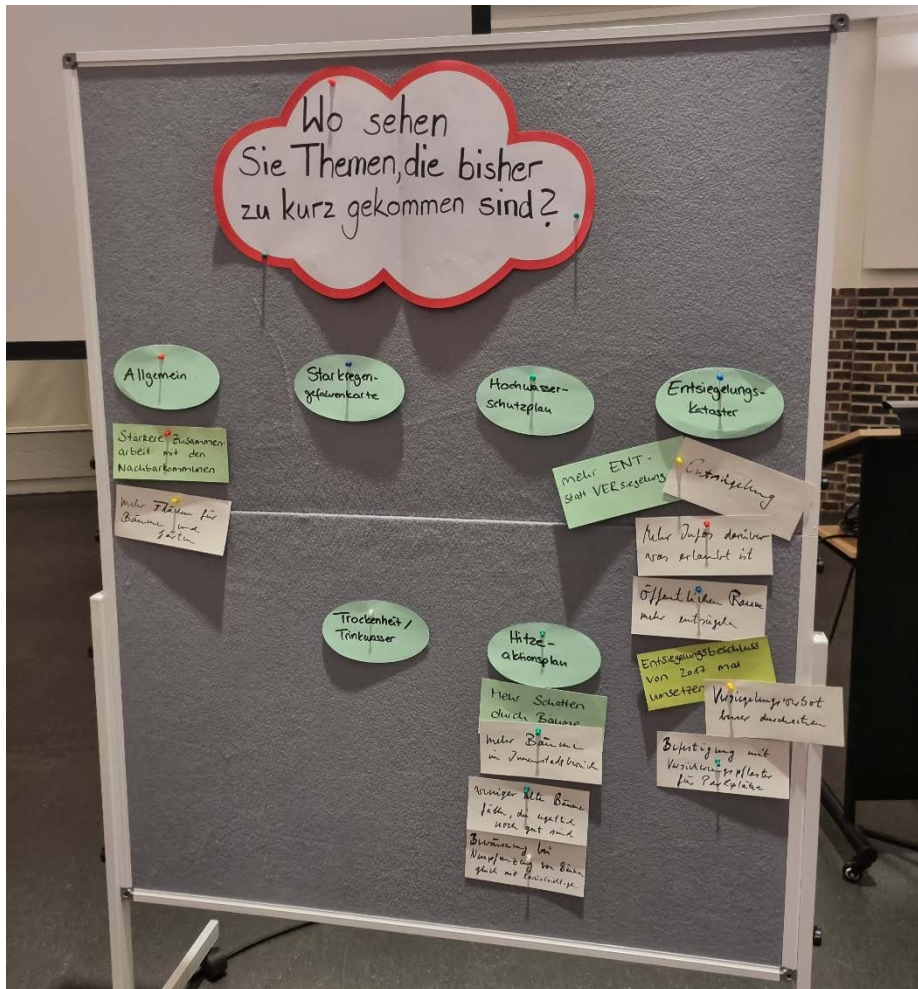 Wo sehen
Sie Themen, die bisher
zu kurz gekommen sind?
Allgemein
Stärkere Zusammen-
arbeit mit den
Nachbarkommunen
mehr Flächen für
Bäume und
Gärten
Starkregen-
gefahrenkarte
Hochwasser-
schutzplan
Entsiegelungs-
kataster
mehr ENT-
statt VERsiegelung
Entsiegelung
Mehr Infos darüber
was erlaubt ist
öffentlichen Raum
mehr entsiegeln
Entsiegelungsbeschluss
von 2017 mal
umsetzen
Versiegelungsverbot
besser durchsetzen
Befestigung mit
Versickerungspflaster
für Parkplätze
Trockenheit/
Trinkwasser
Hitze-
aktionsplan
Mehr Schatten
durch Bäume
mehr Bäume
im Innenstadtbereich
weniger alte Bäume
fällen, die eigentlich
noch gut sind
Bewässerung bei
Neupflanzung von Bäumen
gleich mit berücksichtigen